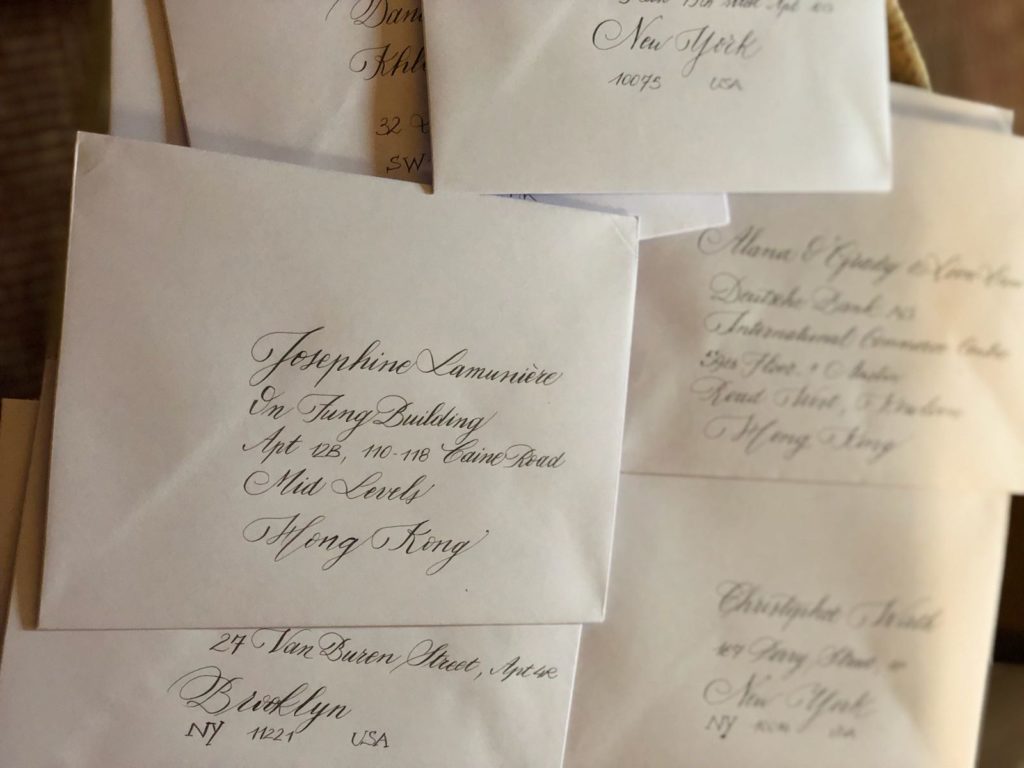 Dani
Khl
32
SW
New York
10075 USA
Josephine Lamunière
On Fung Building
Apt 12B, 110-118 Caine Road
Mid Levels
Hong Kong
Alana & Grady
Deutsche Bank AG
International Commerce Centre
Floor, 1 Austin
Road West, Kowloon
Hong Kong
27 Van Buren Street, Apt
Brooklyn
NY 11221 USA
Christopher
Perry Street,
New York
NY